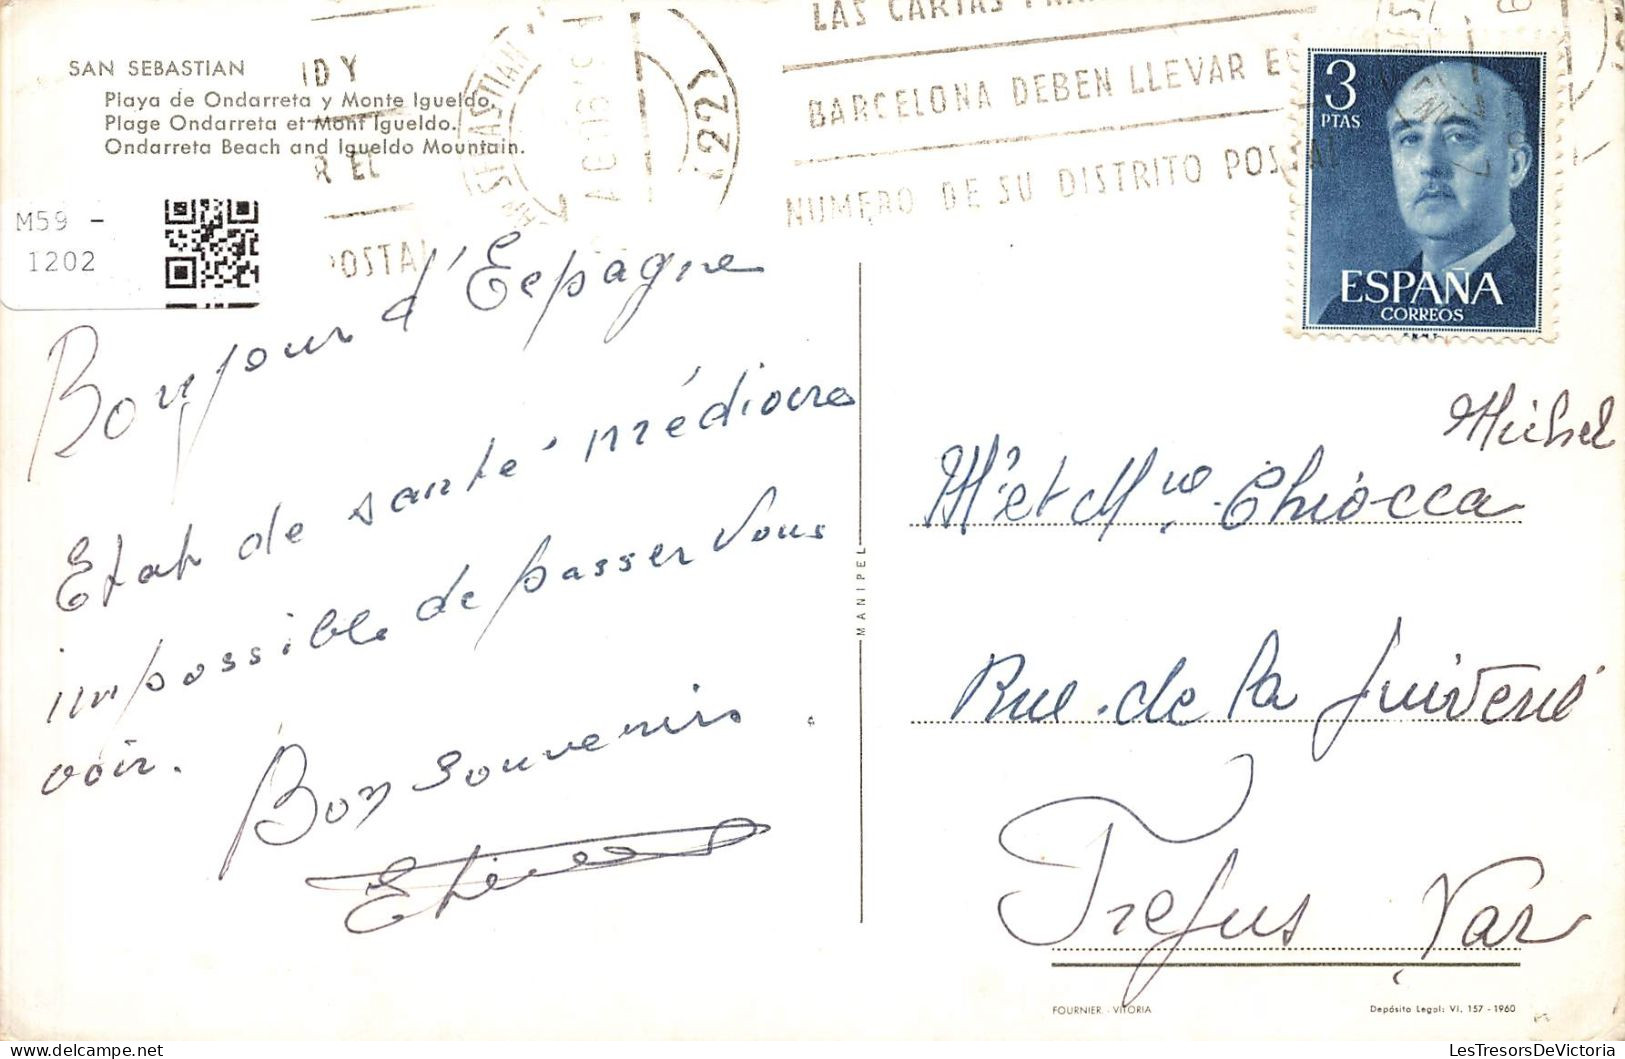 SAN SEBASTIAN
Playa de Ondarreta y Monte Igueldo.
Plage Ondarreta et Mont Igueldo.
Ondarreta Beach and Igueldo Mountain.
M59 -
1202
LAS CARTAS PARA
BARCELONA DEBEN LLEVAR EL
NUMERO DE SU DISTRITO POSTAL
3
PTAS
ESPAÑA
CORREOS
F.N.M.T.
Bonjour d'Espagne
Etat de santé médiocre
impossible de passer vous
voir.
Bon souvenirs
MANIPEL
Michel
Mr et Mme Chiocca
Rue de la Juiverie
Frejus Var
FOURNIER. - VITORIA
Depósito Legal: VI. 157 - 1960
LesTresorsDeVictoria